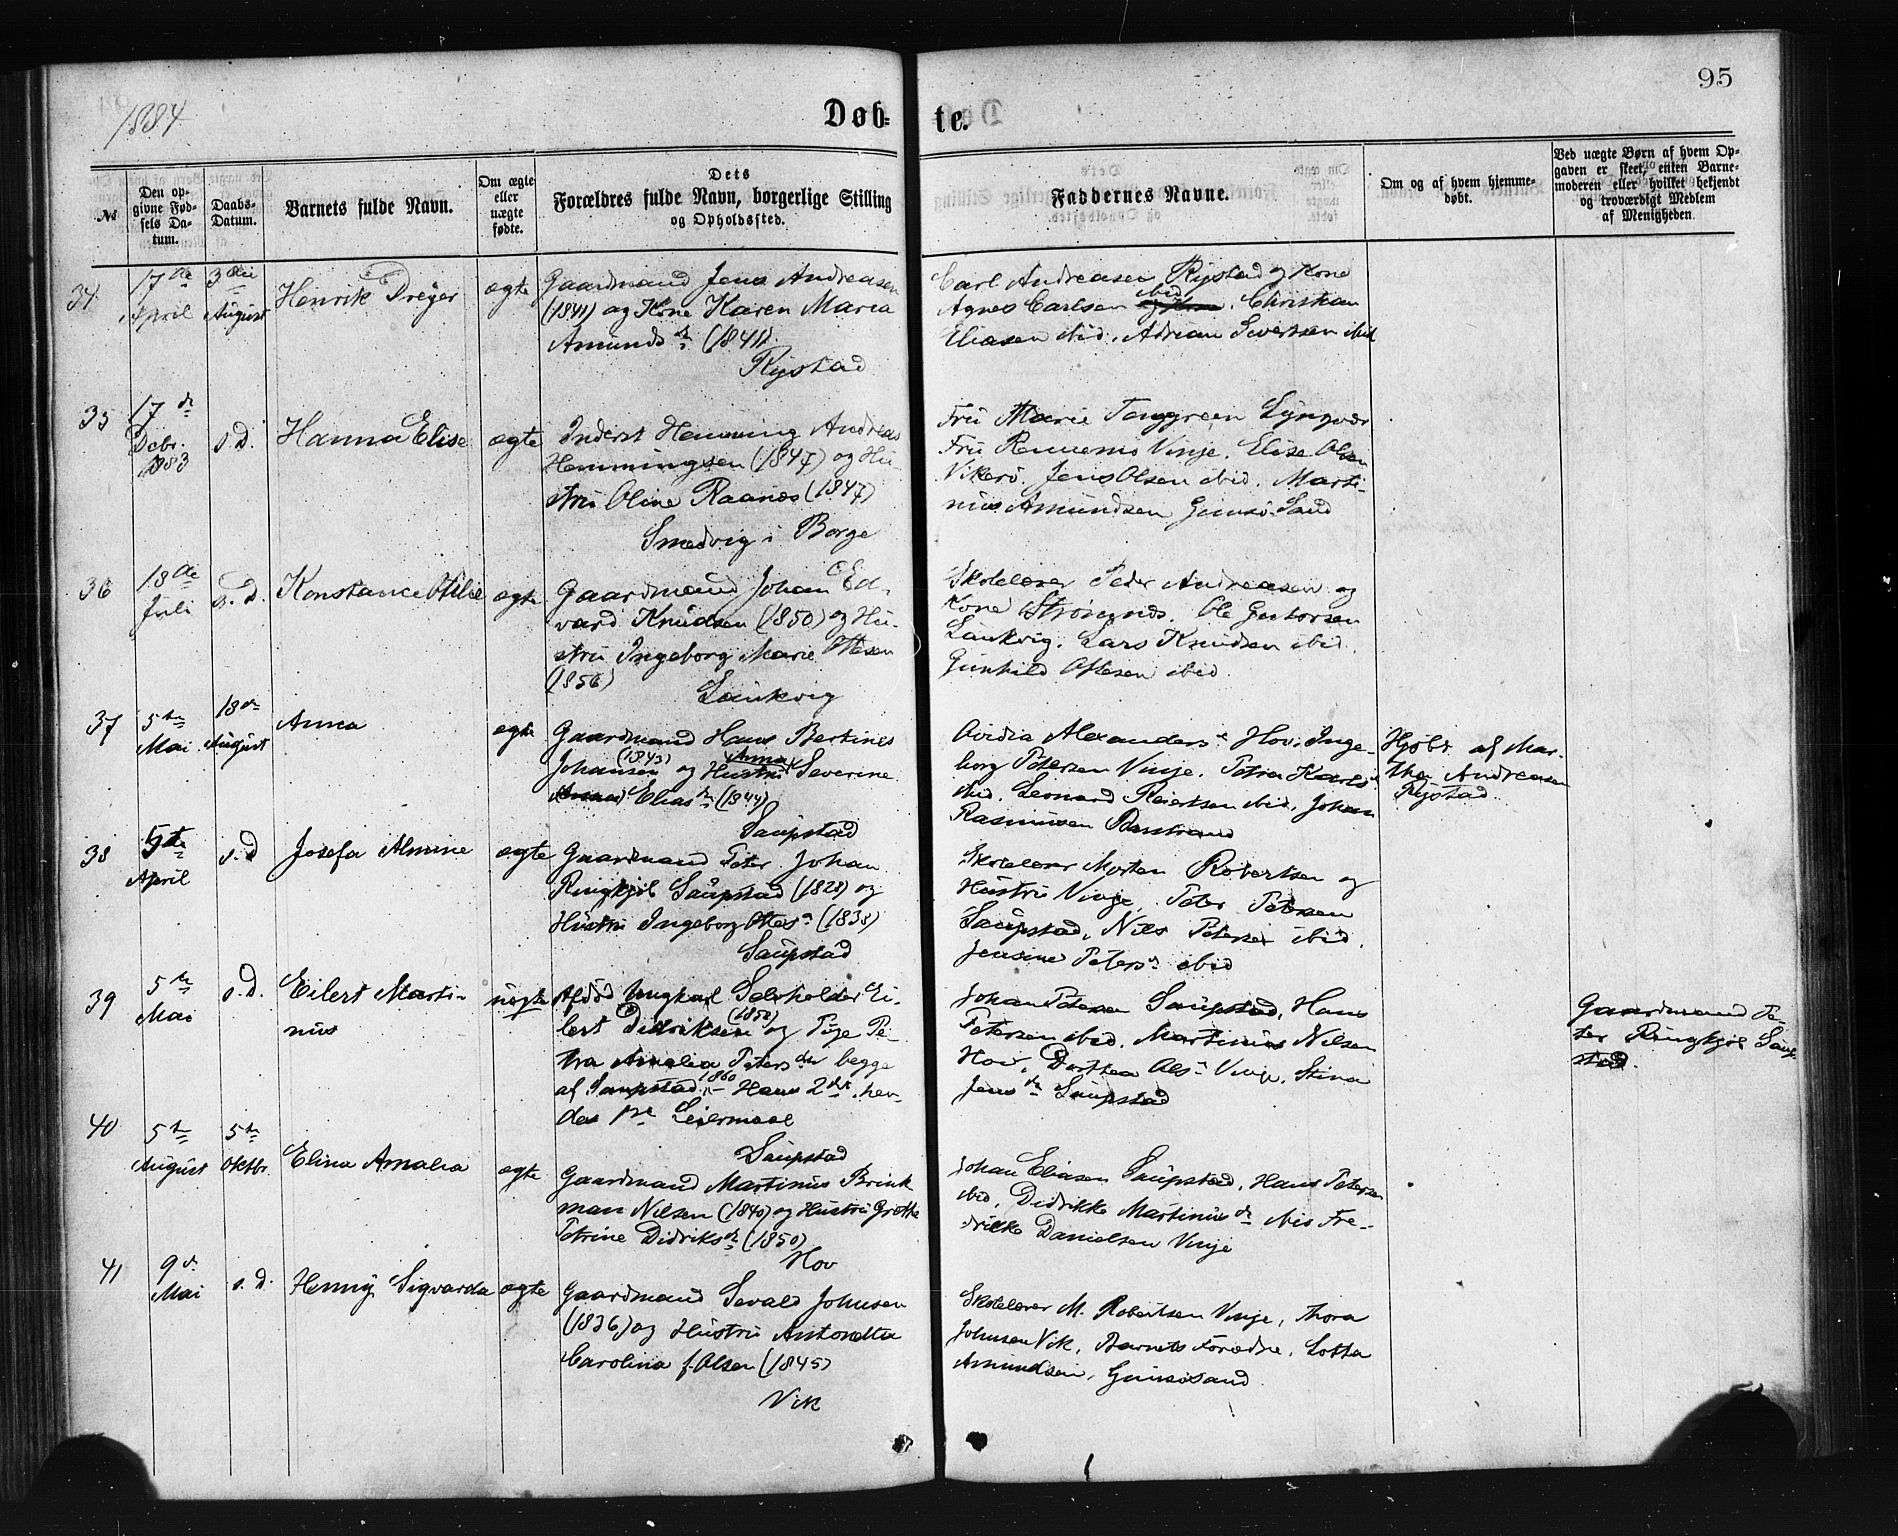 95
1884
Døb- te.
№
Den op-
givne Fød-
sels Da-
tum.
Daabs-
Datum.
Barnets fulde Navn.
Om ægte
eller
uægte
fødte.
Dets
Forældres fulde Navn, borgerlige Stilling
og Opholdssted.
Faddernes Navne.
Om og af hvem hjemme-
døbt.
Ved uægte Børn af hvem Op-
gaven er skeet, enten Barne-
moderen eller hvilket bekjendt
og troværdigt Medlem
af Menigheden.
34
17de
April
3die
August
Henrik Dreyer
ægte
Gaardmand Jens Andreasen
(1841) og Kone Karen Maria
Amundsdr (1841).
Rystad
Carl Andreasen Rystad og Kone
Agnes Carlsen ibid. Christian
Eliasen ibid. Adrian Sivertsen ibid
35
17de
Debr.
1883
s.D.
Hanna Elise
ægte
Inderst Hemming Andreas
Hemmingsen (1847) og Hu-
stru Oline Raanes (1847)
Smedvig i Borge
Fru Marie Tanggreen Lyngvær
Fru Vinje. Elise Olsen
Vikerø. Jens Olsen ibid. Marti-
nius Amundsen Gimsø-Sand
36
18de
Juli
s.D.
Konstance Otilie
ægte
Gaardmand Johan Ed-
vard Knudsen (1850) og Hu-
stru Ingeborg Marie Ottesen
(1856)
Saukvig
Skolelærer Peder Andreasen og
Kone Strømnes. Ole Guttorsen
Saukvig. Lars Knudsen ibid.
Gunhild Ottesen ibid.
37
5te
Mai
18de
August
Anna
ægte
Gaardmand Hans Bertines
Johansen (1843) og Hustru Anna Severine
Eliasdr (1844)
Saupstad
Ovidia Alexandersdr Hov. Inge-
borg Petersen Vinje. Petra Karlsdr
ibid. Leonard Reiertsen ibid. Johan
Rasmusen Barstrand
Hjdbt af Mar-
tha Andreasen
Rystad.
38
5te
April
s.D
Josefa Almine
ægte
Gaardmand Peter Johan
Ringkjøb Saupstad (1828) og
Hustru Ingeborg Ottesdr (1838)
Saupstad
Skolelærer Morten Robertsen og
Hustru Vinje. Peter Petersen
Saupstad, Nils Petersen ibid.
Jensine Petersdr ibid
39
5te
Mai
s.D.
Eilert Marti-
nus
uægte
Afdød Ungkarl Selvholder Ei-
lert Didriksen (1850) og Pige Pe-
tra Amalia Petersdtr begge
af Saupstad, 1860 – Hans 2det, hen-
des 1ste Leiermaal
Saupstad
Johan Petersen Saupstad, Hans
Petersen ibid. Martinus Nilsen
Hov, Dorthea Olsdr Vinje, Stina
Jensdr Saupstad
Gaardmand Pe-
ter Ringkjøb Saup-
stad.
40
5te
August
5te
Oktbr.
Elina Amalia
ægte
Gaardmand Martinus Brink
man Nilsen (1840) og Hustru Grethe
Petrine Didriksdr (1850)
Hov
Johan Eliasen Saupstad, Hans Petersen
ibid, Didrikke Martinusdr ibid Fre-
drikke Danielsen Vinje
41
9de
Mai
s.D.
Henny Sigvarda
ægte
Gaardmand Sevald Johnsen
(1836) og Hustru Antonette
Carolina f. Olsen (1845)
Vik
Skolelærer M. Robertsen Vinje, Thora
Johnsen Vik, Barnets Forældre, Lotta
Amundsen, Gimsøsand.